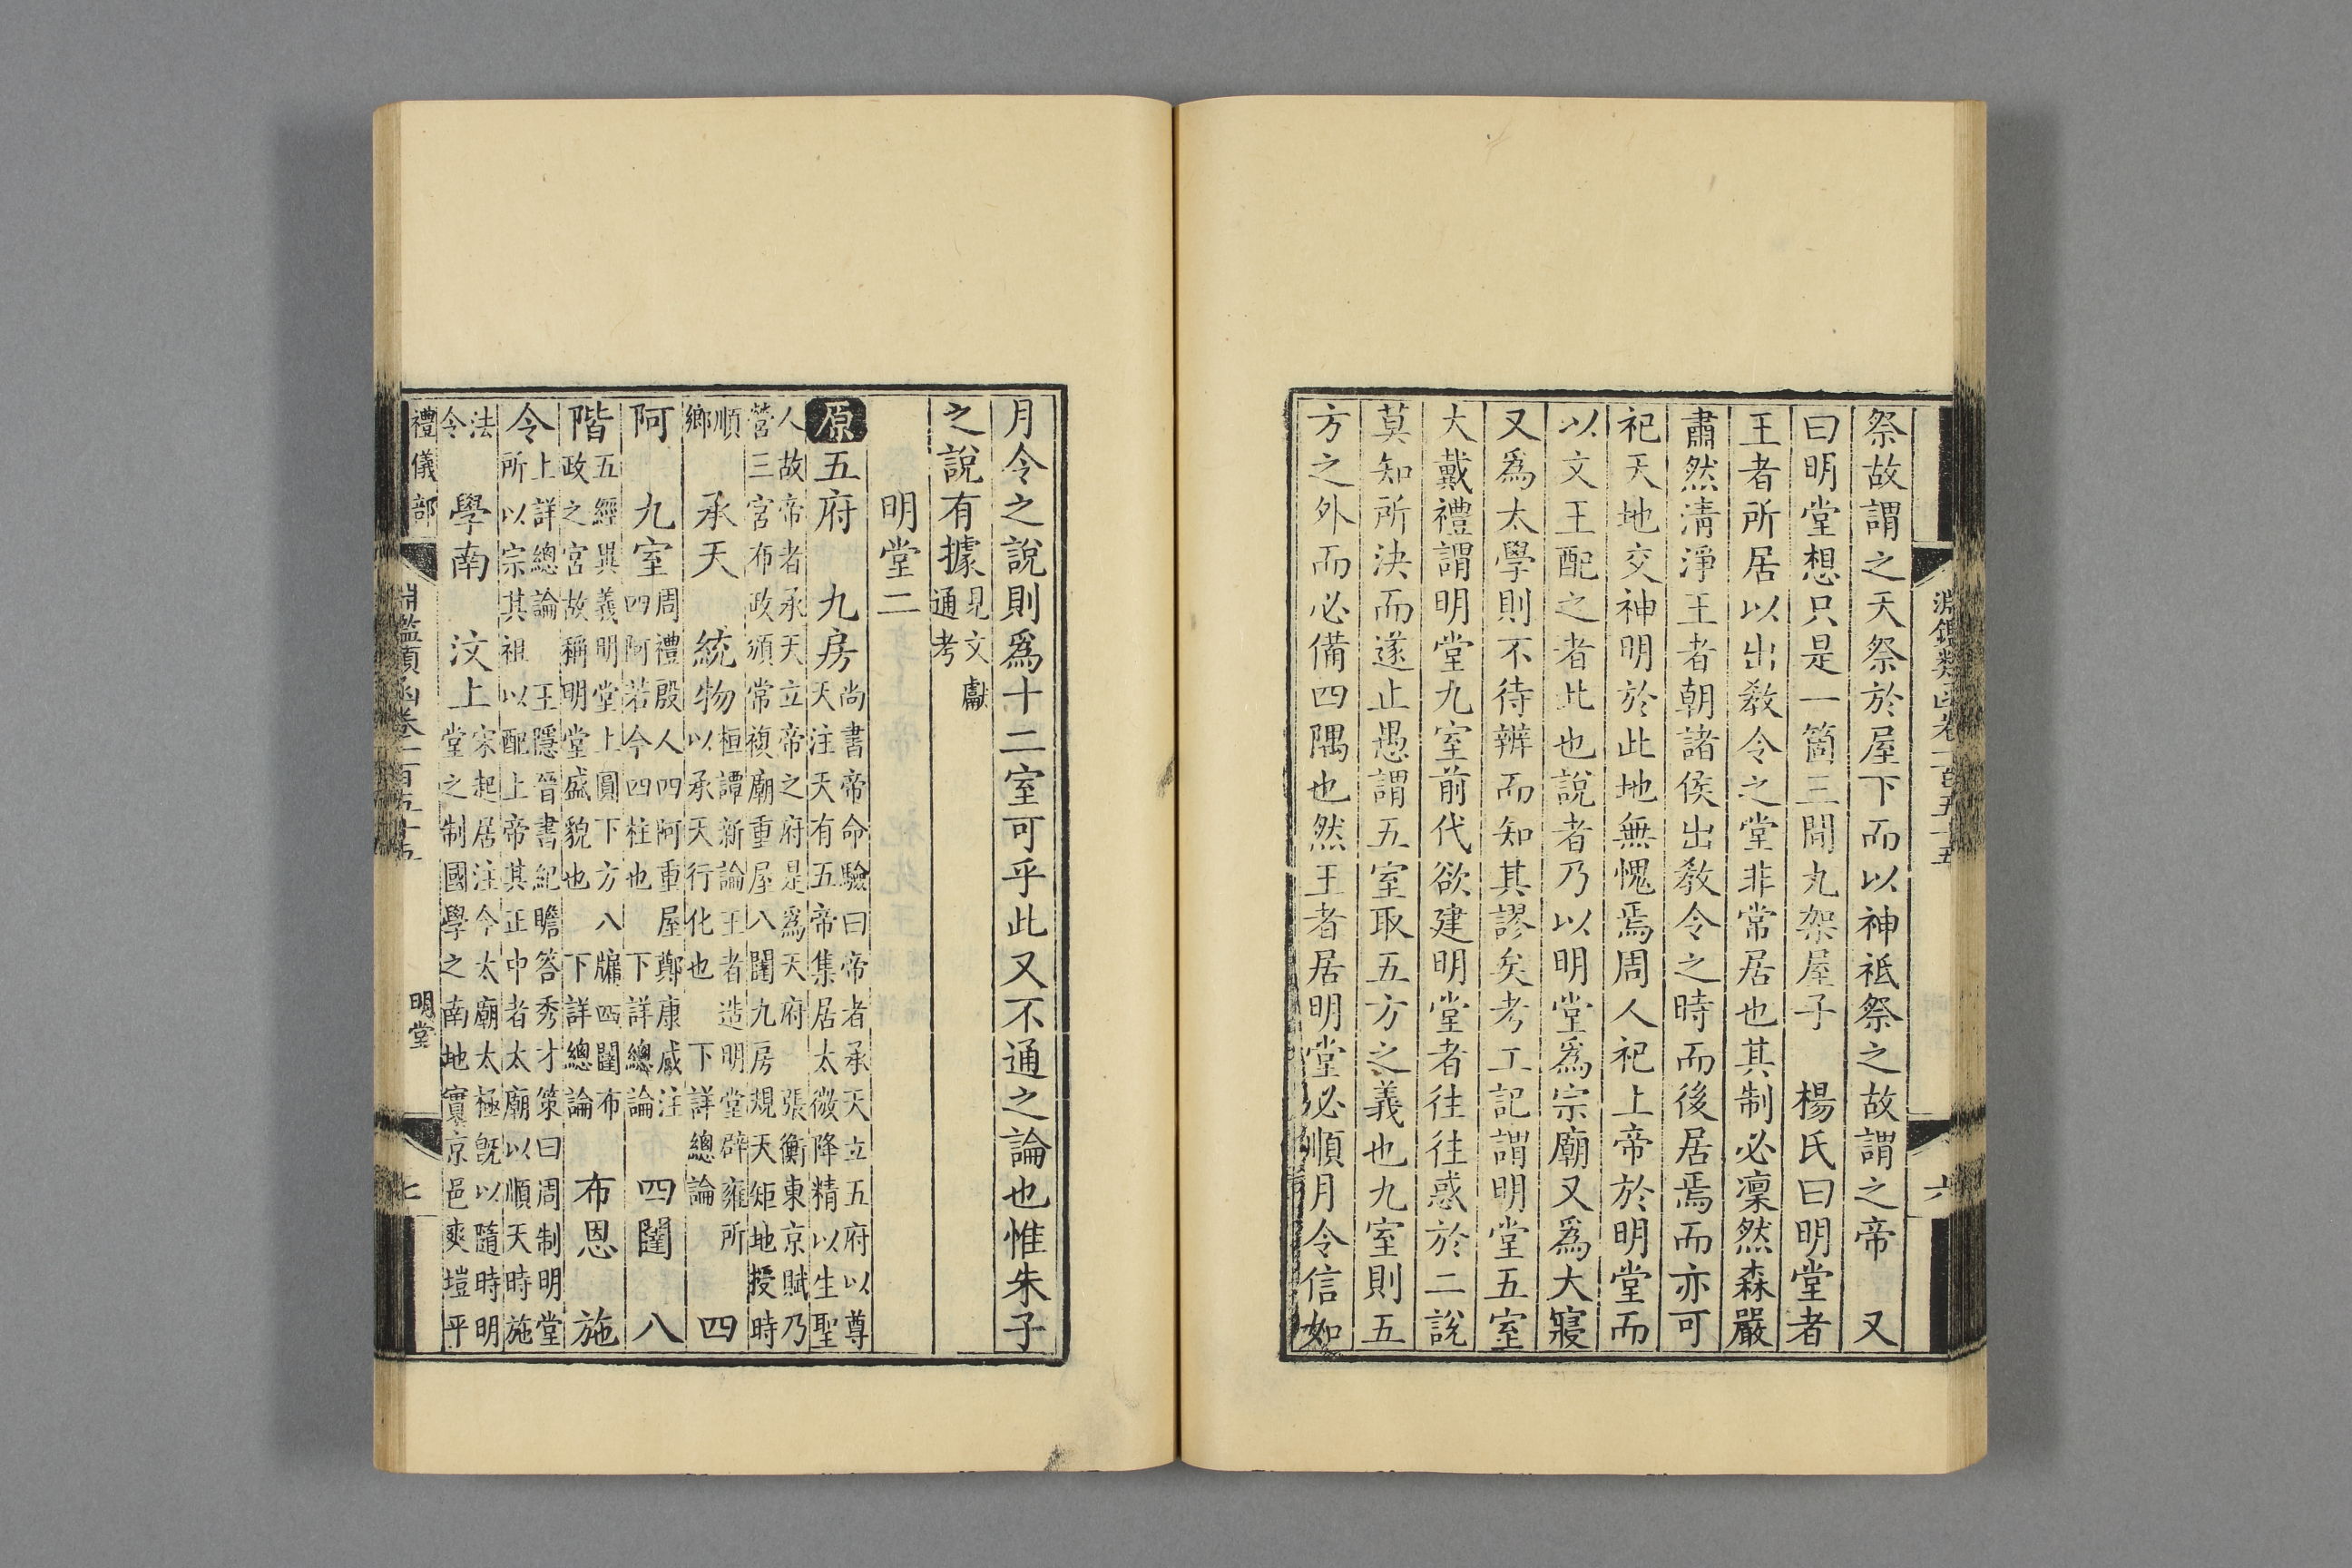 淵鑑類函卷一百五十五
六
祭故謂之天祭於屋下而以神祗祭之故謂之帝　又
曰明堂想只是一箇三間九架屋子　楊氏曰明堂者
王者所居以出敎令之堂非常居也其制必凜然森嚴
肅然淸淨王者朝諸侯出敎令之時而後居焉而亦可
祀天地交神明於此地無愧焉周人祀上帝於明堂而
以文王配之者此也說者乃以明堂爲宗廟又爲大寢
又爲太學則不待辨而知其謬矣考工記謂明堂五室
大戴禮謂明堂九室前代欲建明堂者往往惑於二說
莫知所決而遂止愚謂五室取五方之義也九室則五
方之外而必備四隅也然王者居明堂必順月令信如
月令之說則爲十二室可乎此又不通之論也惟朱子
之說有據見文獻通考
明堂二
原五府　九房尚書帝命驗曰帝者承天立五府以尊天注天有五帝集居太微降精以生聖
人故帝者承天立帝之府是爲天府　張衡東京賦乃營三宮布政頒常複廟重屋八闥九房規天矩地授時
順鄉　承天　統物桓譚新論王者造明堂辟雍所以承天行化也　下詳總論　四
阿　九室周禮殷人四阿重屋鄭康成注四阿若今四柱也　下詳總論　四闥　八
階五經異義明堂上圓下方八牖四闥布政之宮故稱明堂盛貌也　下詳總論　布恩　施
令上詳總論　王隱晉書紀瞻答秀才策曰周制明堂所以宗其祖以配上帝其正中者太廟以順天時施
法令　學南　汶上宋起居注今太廟太極旣以隨時明堂之制國學之南地實京邑爽塏平
禮儀部　淵鑑類函卷一百五十五　明堂　七